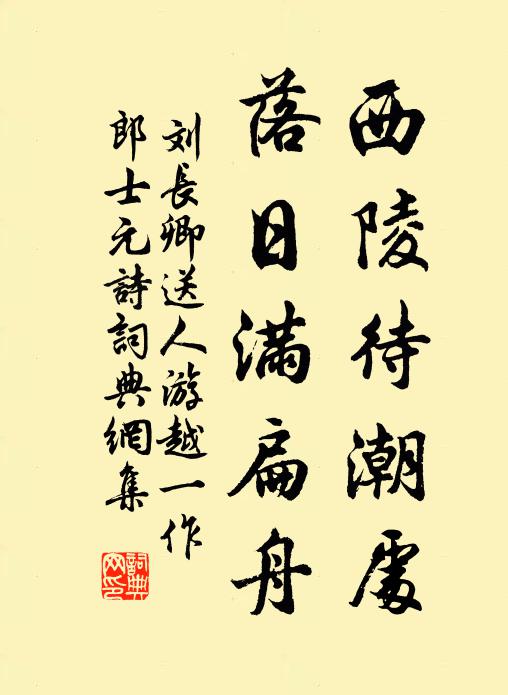 西陵待潮處
落日满扁舟
刘長卿送人游越一作
郎士元詩詞典網集
詞典
网印